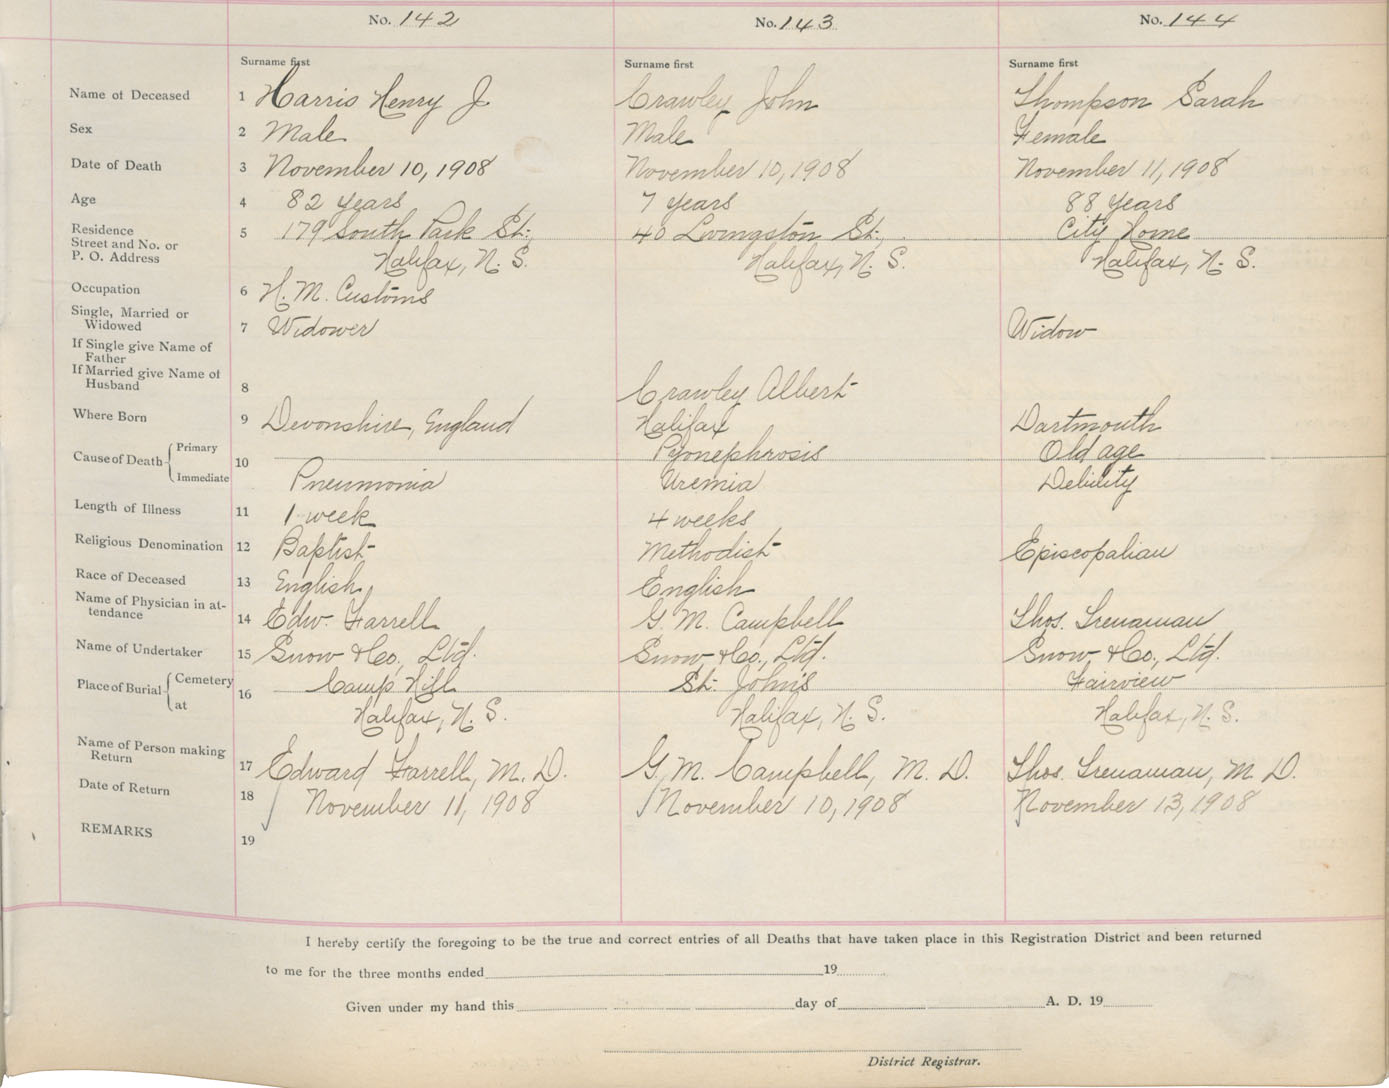 No. 142 No. 143 No. 144
Surname first Surname first Surname first
Name of Deceased 1 Harris Henry J Crawley John Thompson Sarah
Sex 2 Male Male Female
Date of Death 3 November 10, 1908 November 10, 1908 November 11, 1908
Age 4 82 years 7 years 88 years
Residence
Street and No. or 5 179 South Park St., 40 Livingston St., City Home
P. O. Address Halifax, N. S. Halifax, N. S. Halifax, N. S.
Occupation 6 H. M. Customs
Single, Married or
Widowed 7 Widower Widow
If Single give Name of
Father
If Married give Name of
Husband 8 Crawley Albert
Where Born 9 Devonshire, England Halifax Dartmouth
Cause of Death Primary 10 Pyonephrosis Old age
Immediate Pneumonia Uremia Debility
Length of Illness 11 1 week 4 weeks
Religious Denomination 12 Baptist Methodist Episcopalian
Race of Deceased 13 English English
Name of Physician in at-
tendance 14 Edw. Farrell G. M. Campbell Thos. Trenaman
Name of Undertaker 15 Snow & Co., Ltd. Snow & Co., Ltd. Snow & Co., Ltd.
Place of Burial Cemetery 16 Camp Hill St. John's Fairview
at Halifax, N. S. Halifax, N. S. Halifax, N. S.
Name of Person making
Return 17 Edward Farrell, M. D. G. M. Campbell, M. D. Thos. Trenaman, M. D.
Date of Return 18 November 11, 1908 November 10, 1908 November 13, 1908
REMARKS 19
I hereby certify the foregoing to be the true and correct entries of all Deaths that have taken place in this Registration District and been returned
to me for the three months ended 19
Given under my hand this day of A. D. 19
District Registrar.